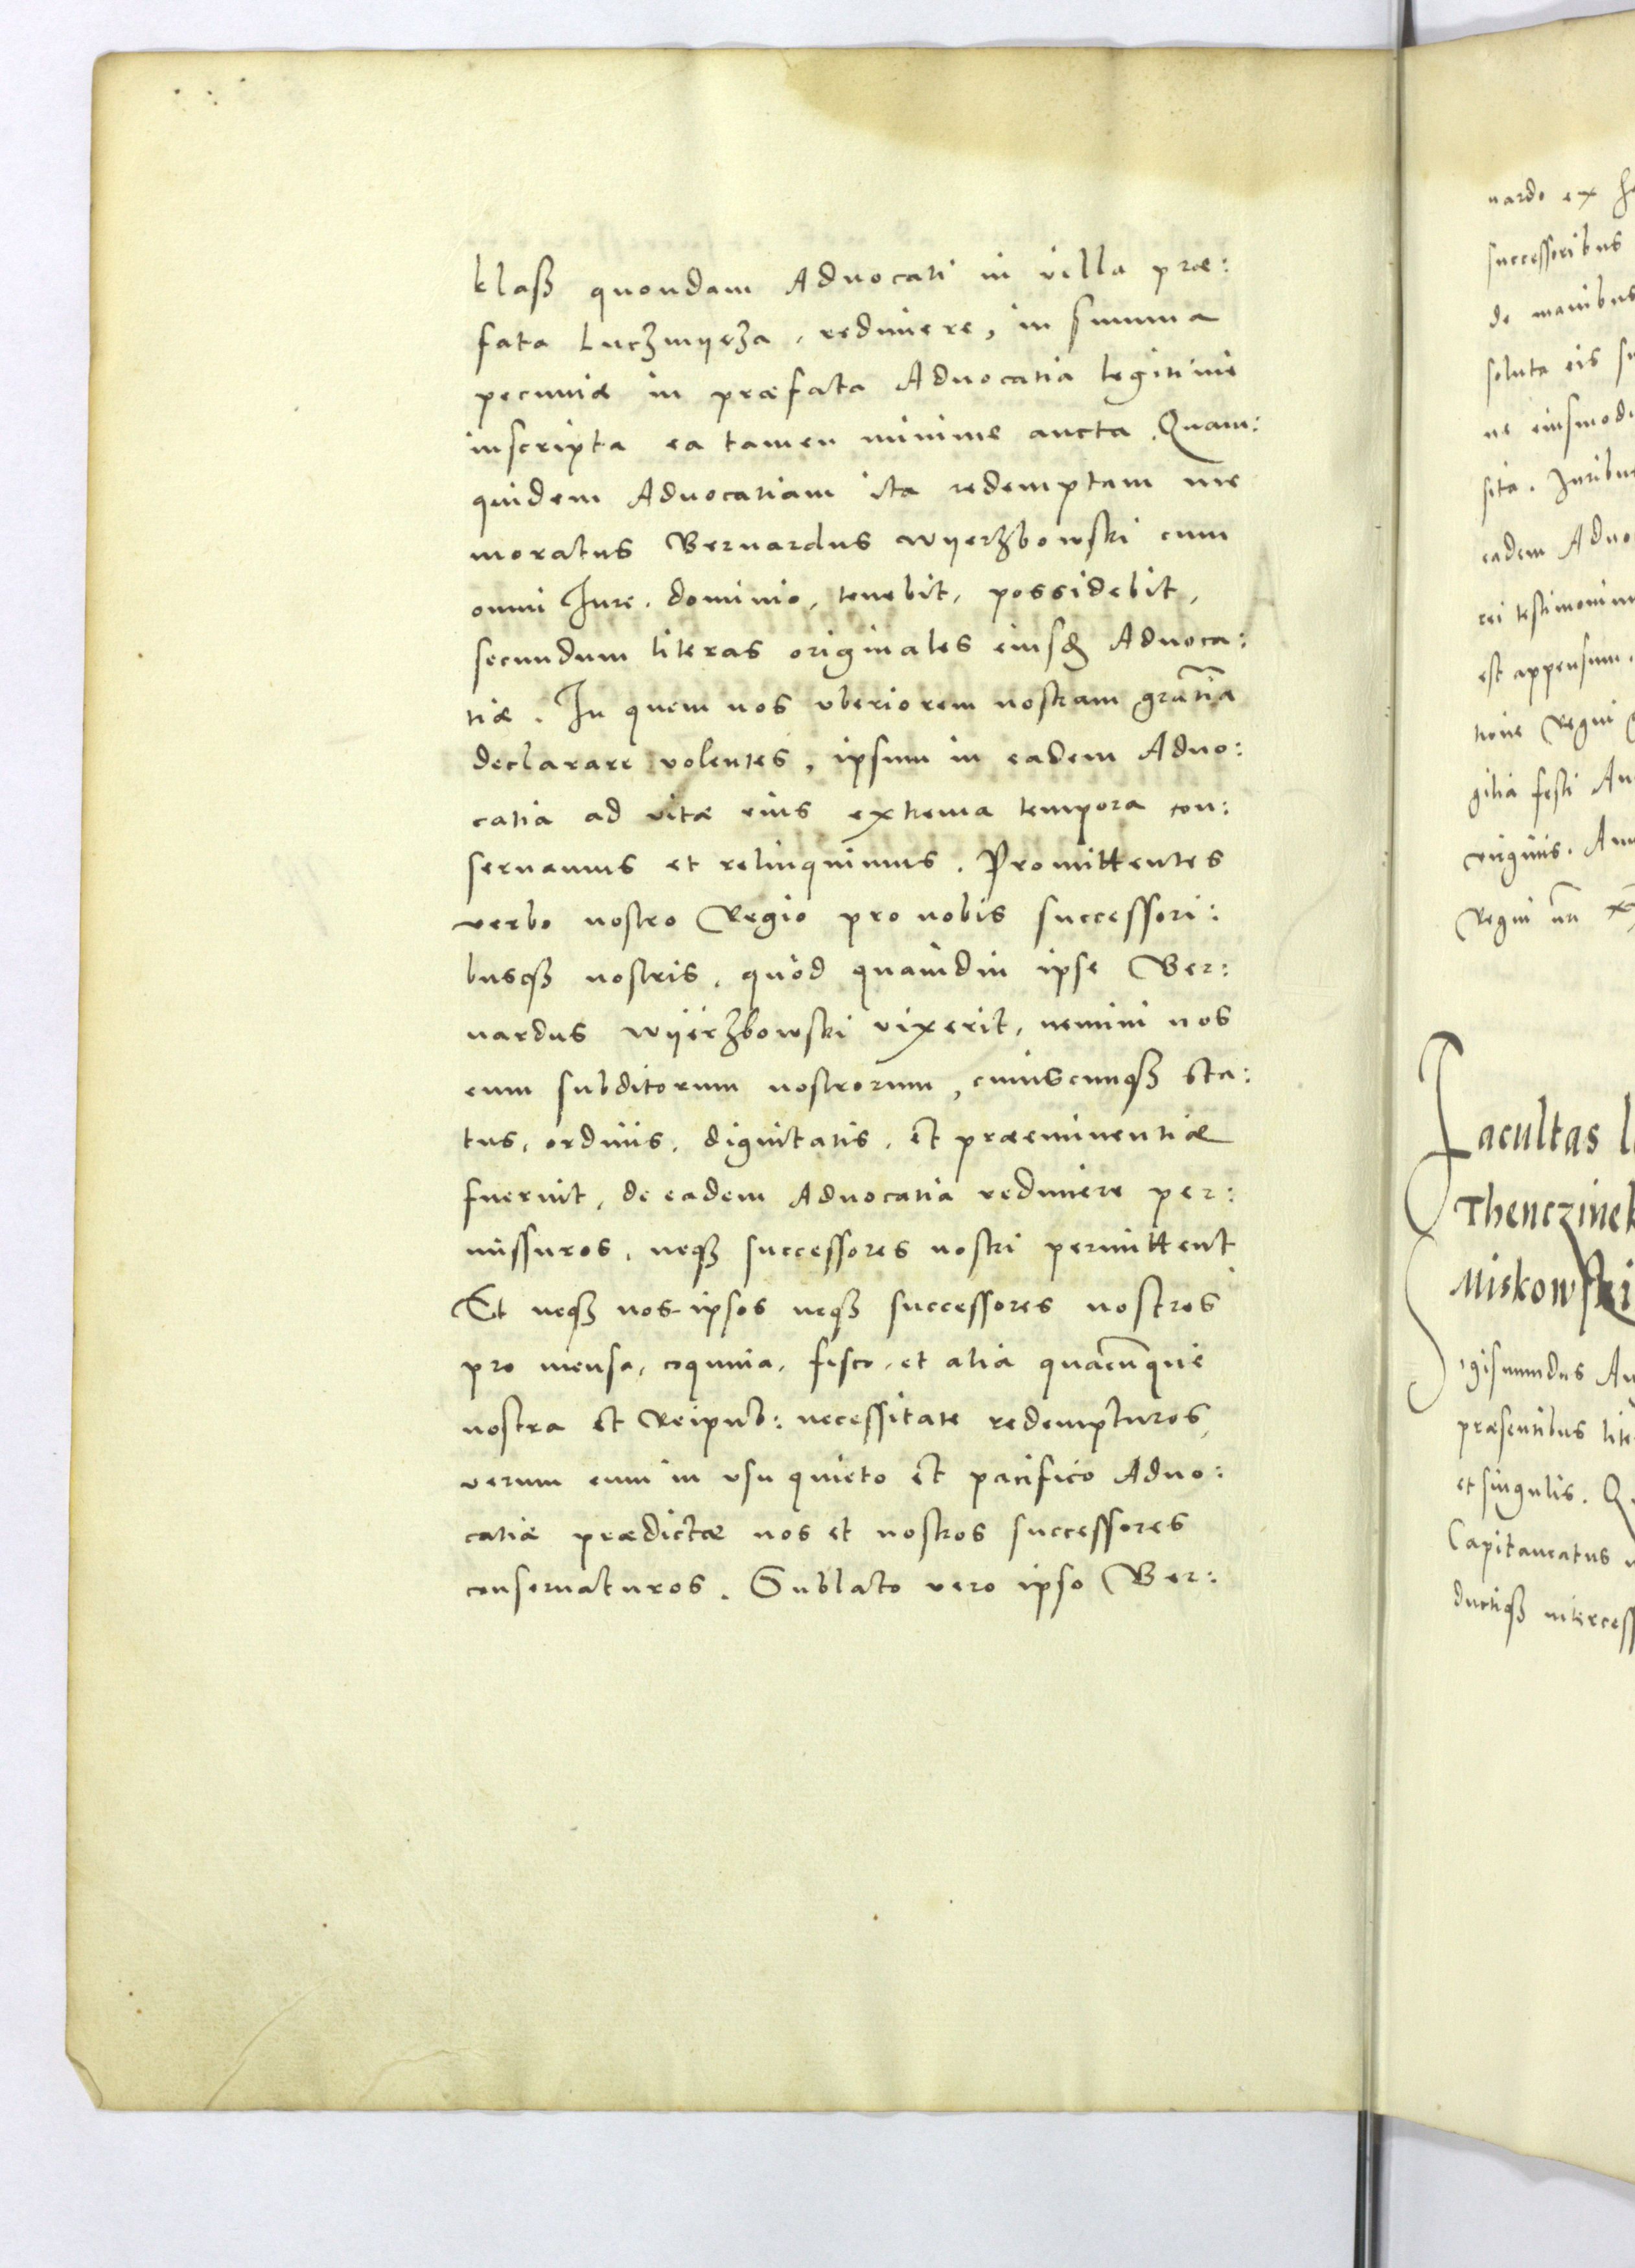 klasß quondam Aduocati in villa præ:
fata Luczmyerza, redimere, in summa
pecuniæ in præfata Aduocatia legitime
inscripta ea tamen minime aucta. Quam:
quidem Aduocatiam ita redemptam me
moratus Bernardus Wyerzbowski cum
omni Iure, dominio, tenebit, possidebit,
secundum literas originales eiusdē Aduoca:
tiæ. In quem nos vberiorem nostram gratia
declarare volentes, ipsum in eadem Aduo:
catia ad vitæ eius extrema tempora con:
seruamus et relinquimus. Promittentes
verbo nostro Regio pro nobis successori:
busqȝ nostris, quòd quamdiu ipse Ber:
nardus Wyerzbowski vixerit, nemini nos
eum subditorum nostrorum, cuiuscunqȝ sta:
tus, ordinis, dignitatis, et præeminentiæ
fuerint, de eadem Aduocatia redimere per:
missuros, neqȝ successores nostri permittent.
Et neqȝ nos ipsos neqȝ successores nostros
pro mensa, coquina, fisco, et alia quacūque
nostra et Reipub: necessitate redempturos,
verum eum in vsu quieto et pacifico Aduo:
catiæ prædictæ nos et nostros successores
conseruaturos. Sublato vero ipso Ber:
nardo ex
successoribus
de manibus
soluta eis
ne eiusmodi
sita. Iuribus
eadem
rei testimonium
est appensum.
tione Regni
gilia festi
virginis.
Regni
Facultas
Thenczinek
Miskowski
Sigismundus
præsentibus
et singulis.
Capitaneatus
ductiqȝ